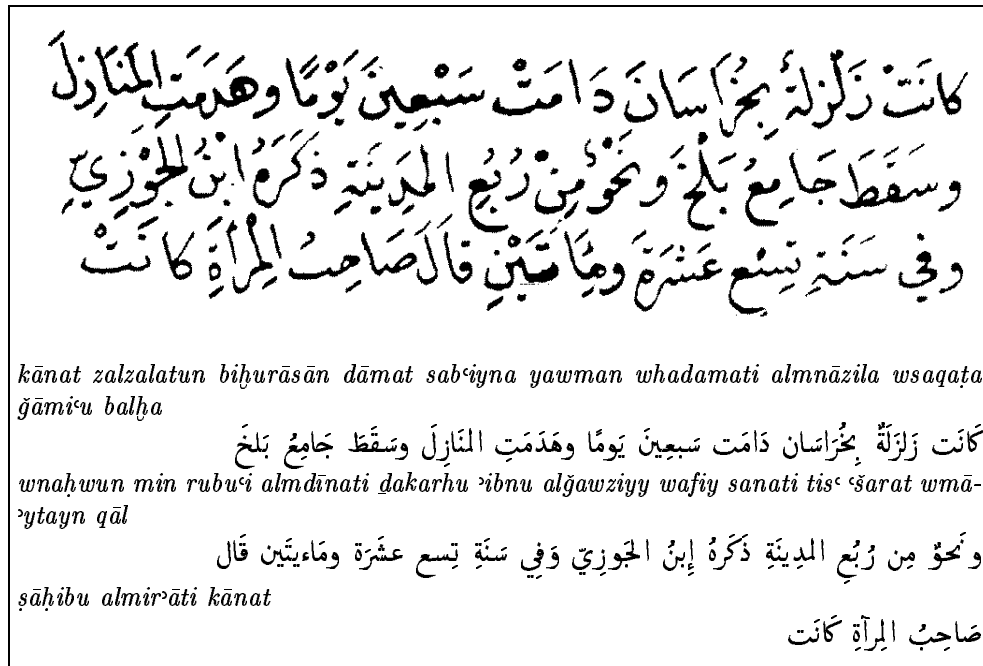 كانَتْ زَلْزلةٌ بِخُرَاسَانَ دَامَتْ سَبْعِينَ يَوْمًا وهَدَمَتِ المَنَازِلَ
وسَقَطَ جَامِعُ بَلْخَ ونَحْوٌ مِنْ رُبُعِ المدِينَةِ ذكَرَهُ ابْنُ الجَوْزِيِّ
وفي سَنَةِ تِسْع عَشْرَةَ ومِائَتَيْنِ قالَ صَاحِبُ المِرْآةِ كانَتْ
kānat zalzalatun biḫurāsān dāmat sabʿiyna yawman whadamati almnāzila wsaqaṭa
ǧāmiʿu balḫa
كَانَت زَلزَلَةٌ بِخُرَاسَان دَامَت سَبعِينَ يَومًا وهَدَمَتِ المنَازِلَ وسَقَطَ جَامِعُ بَلخَ
wnaḥwun min rubuʿi almdīnati ḏakarhu ʾibnu alǧawziyy wafiy sanati tisʿ ʿšarat wmā-
ʾytayn qāl
ونَحوٌ مِن رُبُعِ المدِينَةِ ذَكَرَهُ إِبنُ الجَوزِيّ وَفِي سَنَةِ تِسع عشَرَة ومَاءيتَين قَال
ṣāḥibu almirʾāti kānat
صَاحِبُ المِرآةِ كَانَت